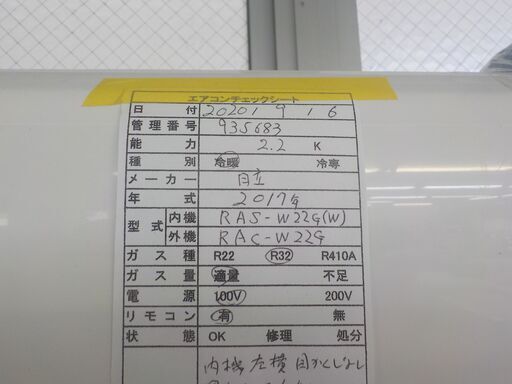 エアコンチェックシート
日付 20201 9 16
管理番号 935683
能力 2.2 K
種別 冷暖 冷専
メーカー 日立
年式 2017年
型式 内機 RAS-W22G(W)
外機 RAC-W22G
ガス種 R22 R32 R410A
ガス量 適量 不足
電源 100V 200V
リモコン 有 無
状態 OK 修理 処分
内機 左横 目かくしなし